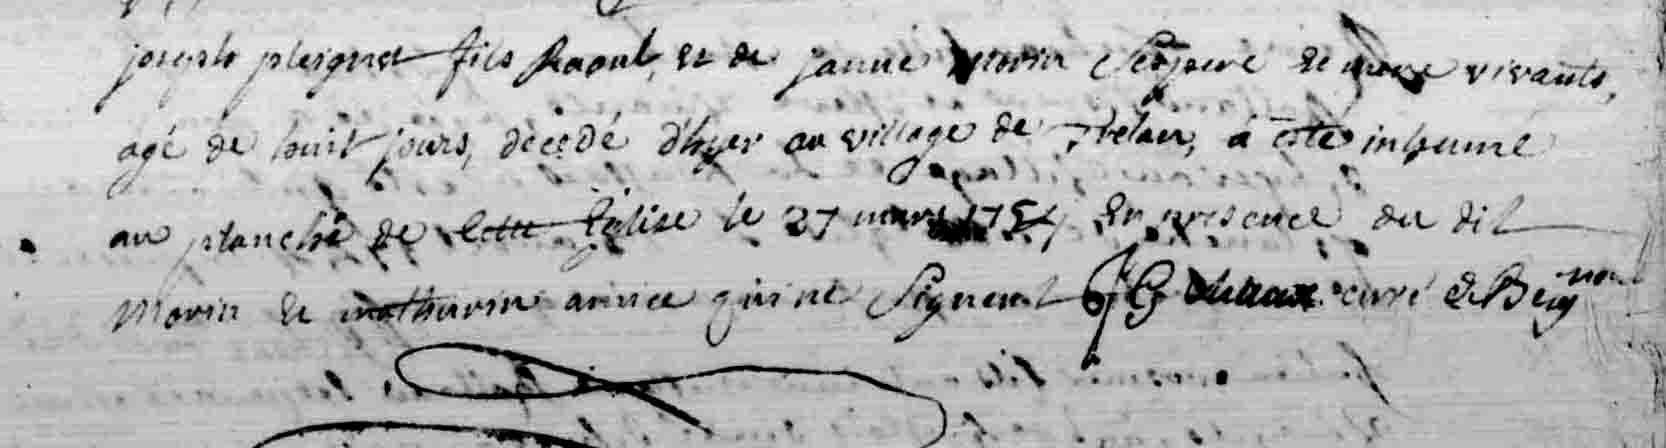 joseph pleignet fils Raoul, et de janne Morin Ses pere et mere vivants,
agé de huit jours, décédé d'hyer au village de Trelan, a été inhumé
au planché de cette Eglise le 27 mars 1754 En presence du dit
Morin et mathurin qui ne Signent curé de Beig